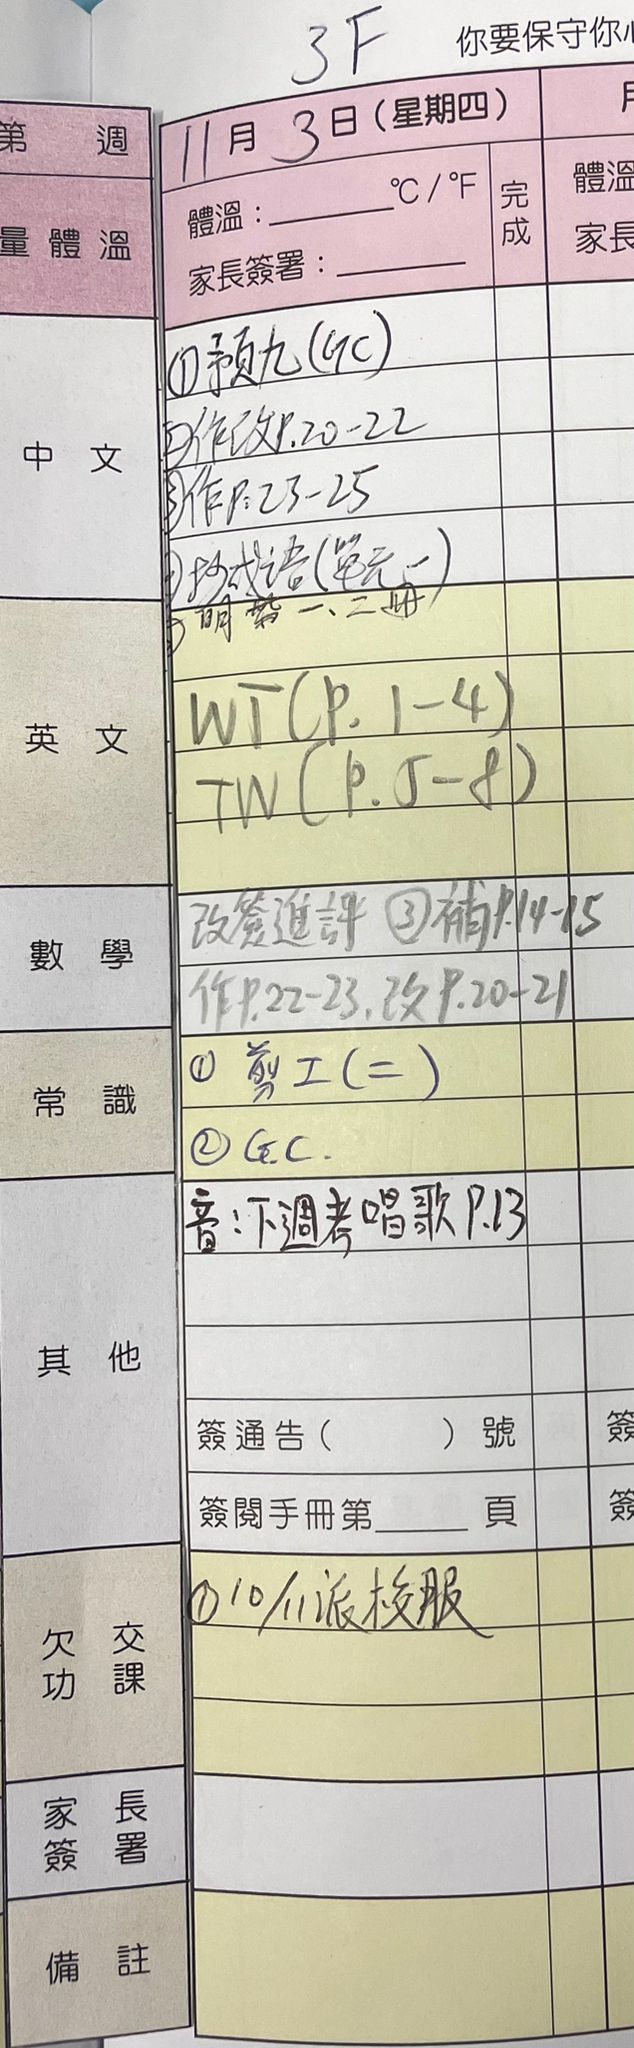 3F
你要保守你心
第 週
11月3日(星期四)
月
量體溫
體溫：______℃/℉
家長簽署：______
完成
體溫
家長
中文
①預九(GC)
②作改P.20-22
③作P.23-25
④抄成語(單元一)
⑤ 明帶一、二冊
英文
WT(P.1-4)
TW(P.5-8)
數學
改簽進評 ③補P.14-15
作P.22-23,改P.20-21
常識
① 剪工(二)
② G.C.
其他
音:下週考唱歌P.13
簽通告( )號
簽
簽閱手冊第____頁
簽
欠交功課
①10/11派校服
家長簽署
備註